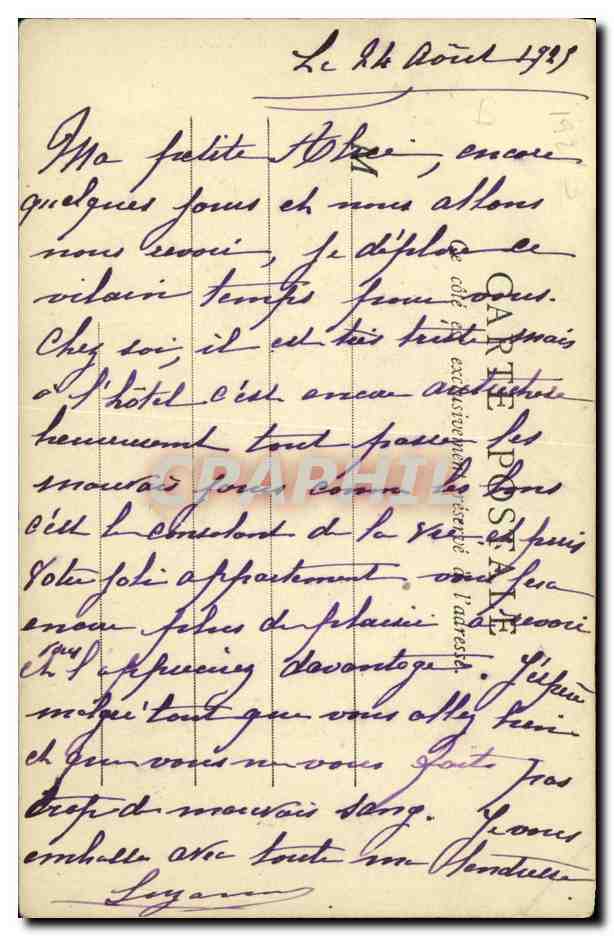 Le 24 Août 1925
Ma petite encore
quelques jours et nous allons
nous revoir, je déplore ce
vilain temps pour vous.
Chez soi, il est très triste mais
à l'hôtel c'est encore autre chose
heureusement tout passe les
mauvais jours comme les bons
c'est le consolant de la vie, et puis
Votre joli appartement vous fera
encore plus de plaisir à revoir
et vous l'apprécierez davantage. J'espère
malgré tout que vous allez bien
et que vous ne vous faite pas
trop de mauvais sang. Je vous
embrasse avec toute ma tendresse
Suzanne
M
CARTE POSTALE
Ce côté est exclusivement réservé à l'adresse.
CPAPHIL